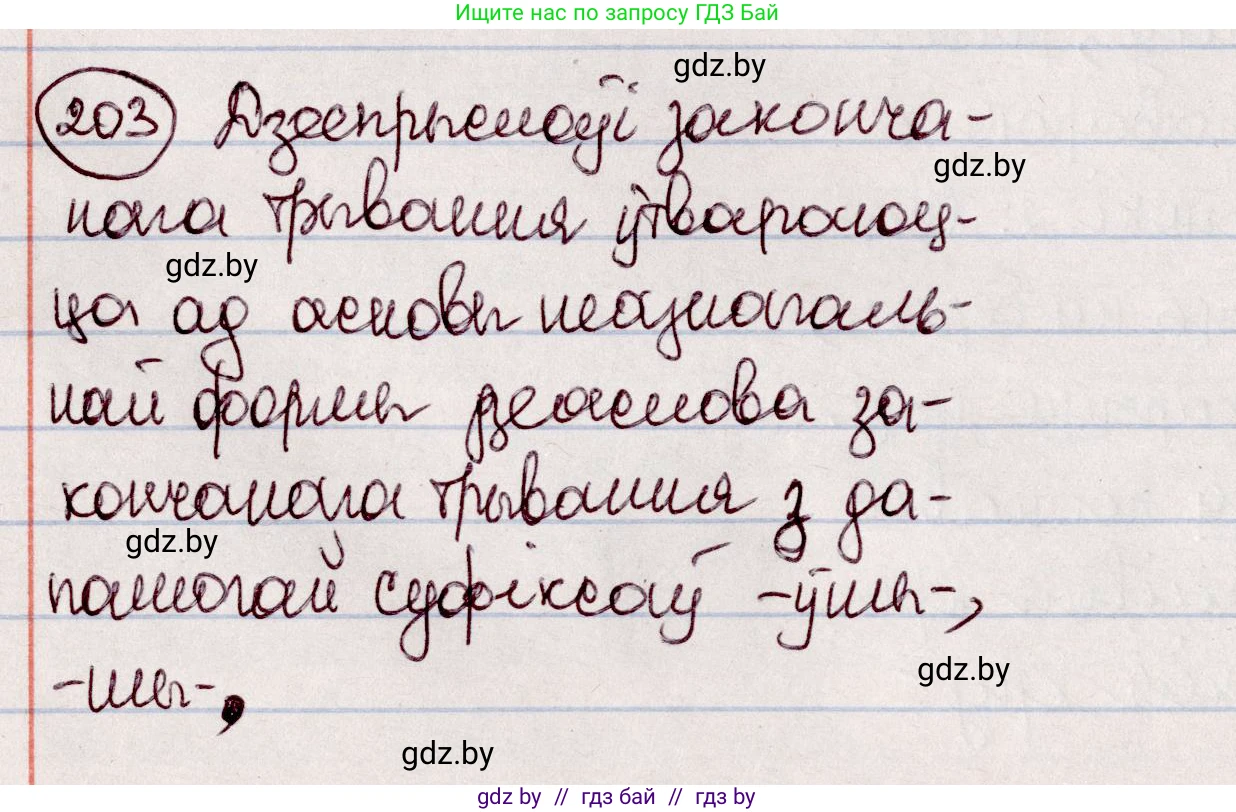 Ищите нас по запросу ГДЗ Бай
gdz.by
203 Дзеепрыслоўі законча-
gdz.by
нага трывання ўтвараюц-
gdz.by
ца ад асновы неазначаль-
най формы дзеяслова за-
кончанага трывання з да-
gdz.by
памогай суфіксаў -ўшы-,
gdz.by
-шы-,
gdz.by
gdz by // гдз бай // гдз by